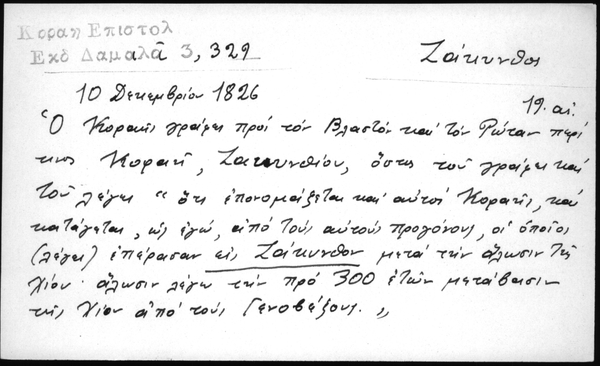 Κοραη Επιστολ
Εκδ Δαμαλᾶ 3, 329
Ζάκυνθος
10 Δεκεμβρίου 1826
19. αἰ.
Ὁ Κοραῆς γράφει πρὸς τὸν Βλαστὸν καὶ τὸν Ρώταν περί
τινος Κοραῆ, Ζακυνθίου, ὅστις τοῦ γράφει καὶ
τοῦ λέγει " ὅτι ἐπονομάζεται καὶ αὐτὸς Κοραῆς, καὶ
κατάγεται, ὡς ἐγώ, ἀπὸ τοὺς αὐτοὺς προγόνους, οἱ ὁποῖοι
(λέγει) ἐπέρασαν εἰς Ζάκυνθον μετὰ τὴν ἅλωσιν τῆς
Χίου· ἅλωσιν λέγει τὴν πρὸ 300 ἐτῶν μετάβασιν
τῆς Χίου ἀπὸ τοὺς Γενοβέζους. "